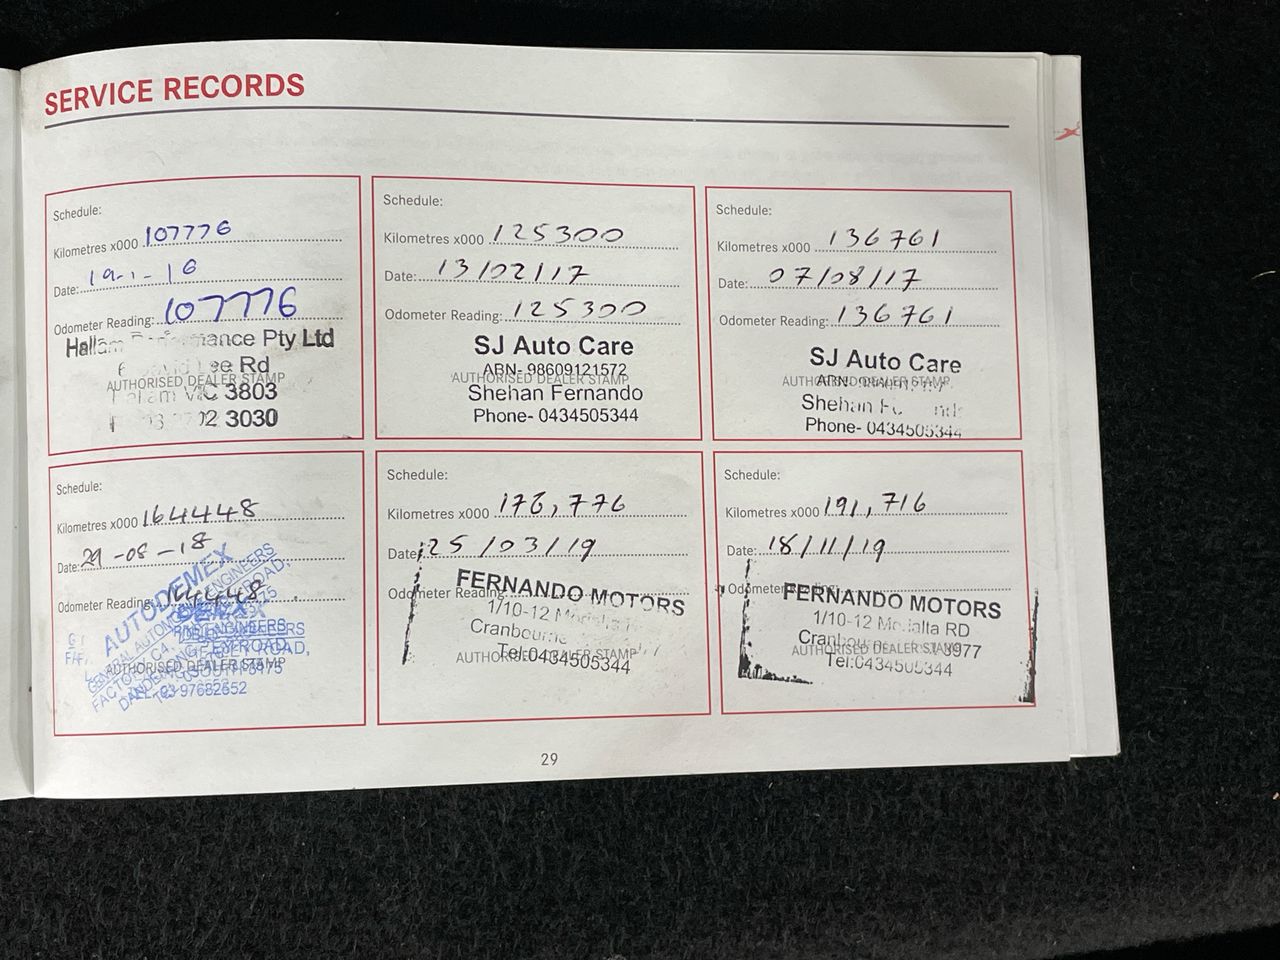 SERVICE RECORDS
Schedule:
Kilometres x000 107776
Date: 19-1-16
Odometer Reading: 107776
Hallam Performance Pty Ltd
Lee Rd
AUTHORISED DEALER STAMP
Hallam Vic 3803
3030
Schedule:
Kilometres x000 125300
Date: 13/02/17
Odometer Reading: 125300
SJ Auto Care
ABN- 98609121572
AUTHORISED DEALER STAMP
Shehan Fernando
Phone- 0434505344
Schedule:
Kilometres x000 136761
Date: 07/08/17
Odometer Reading: 136761
SJ Auto Care
ABN-
AUTHORISED DEALER STAMP
Shehan
Phone- 0434505344
Schedule:
Kilometres x000 164448
Date: 29-08-18
Odometer Reading: 164448
AUTODEMEX
ENGINEERS
ROAD,
AUTHORISED DEALER STAMP
03-97682652
Schedule:
Kilometres x000 176,776
Date: 25/03/19
Odometer Reading:
FERNANDO MOTORS
1/10-12
Cranbourne
AUTHORISED DEALER STAMP
Tel:0434505344
Schedule:
Kilometres x000 191,716
Date: 18/11/19
Odometer Reading:
FERNANDO MOTORS
1/10-12 RD
3977
AUTHORISED DEALER STAMP
Tel:0434505344
29